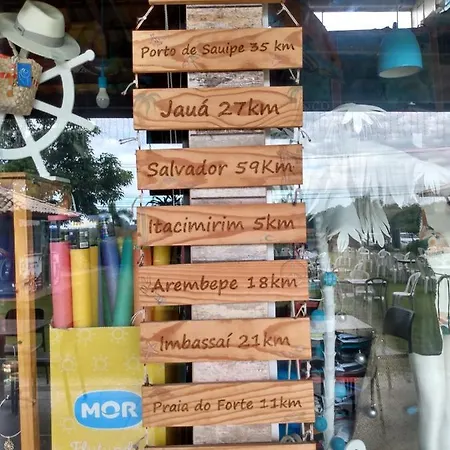 Porto de Sauipe 35 km
Jauá 27km
Salvador 59Km
Itacimirim 5km
Arembepe 18km
Imbassaí 21km
MOR
Praia do Forte 11km